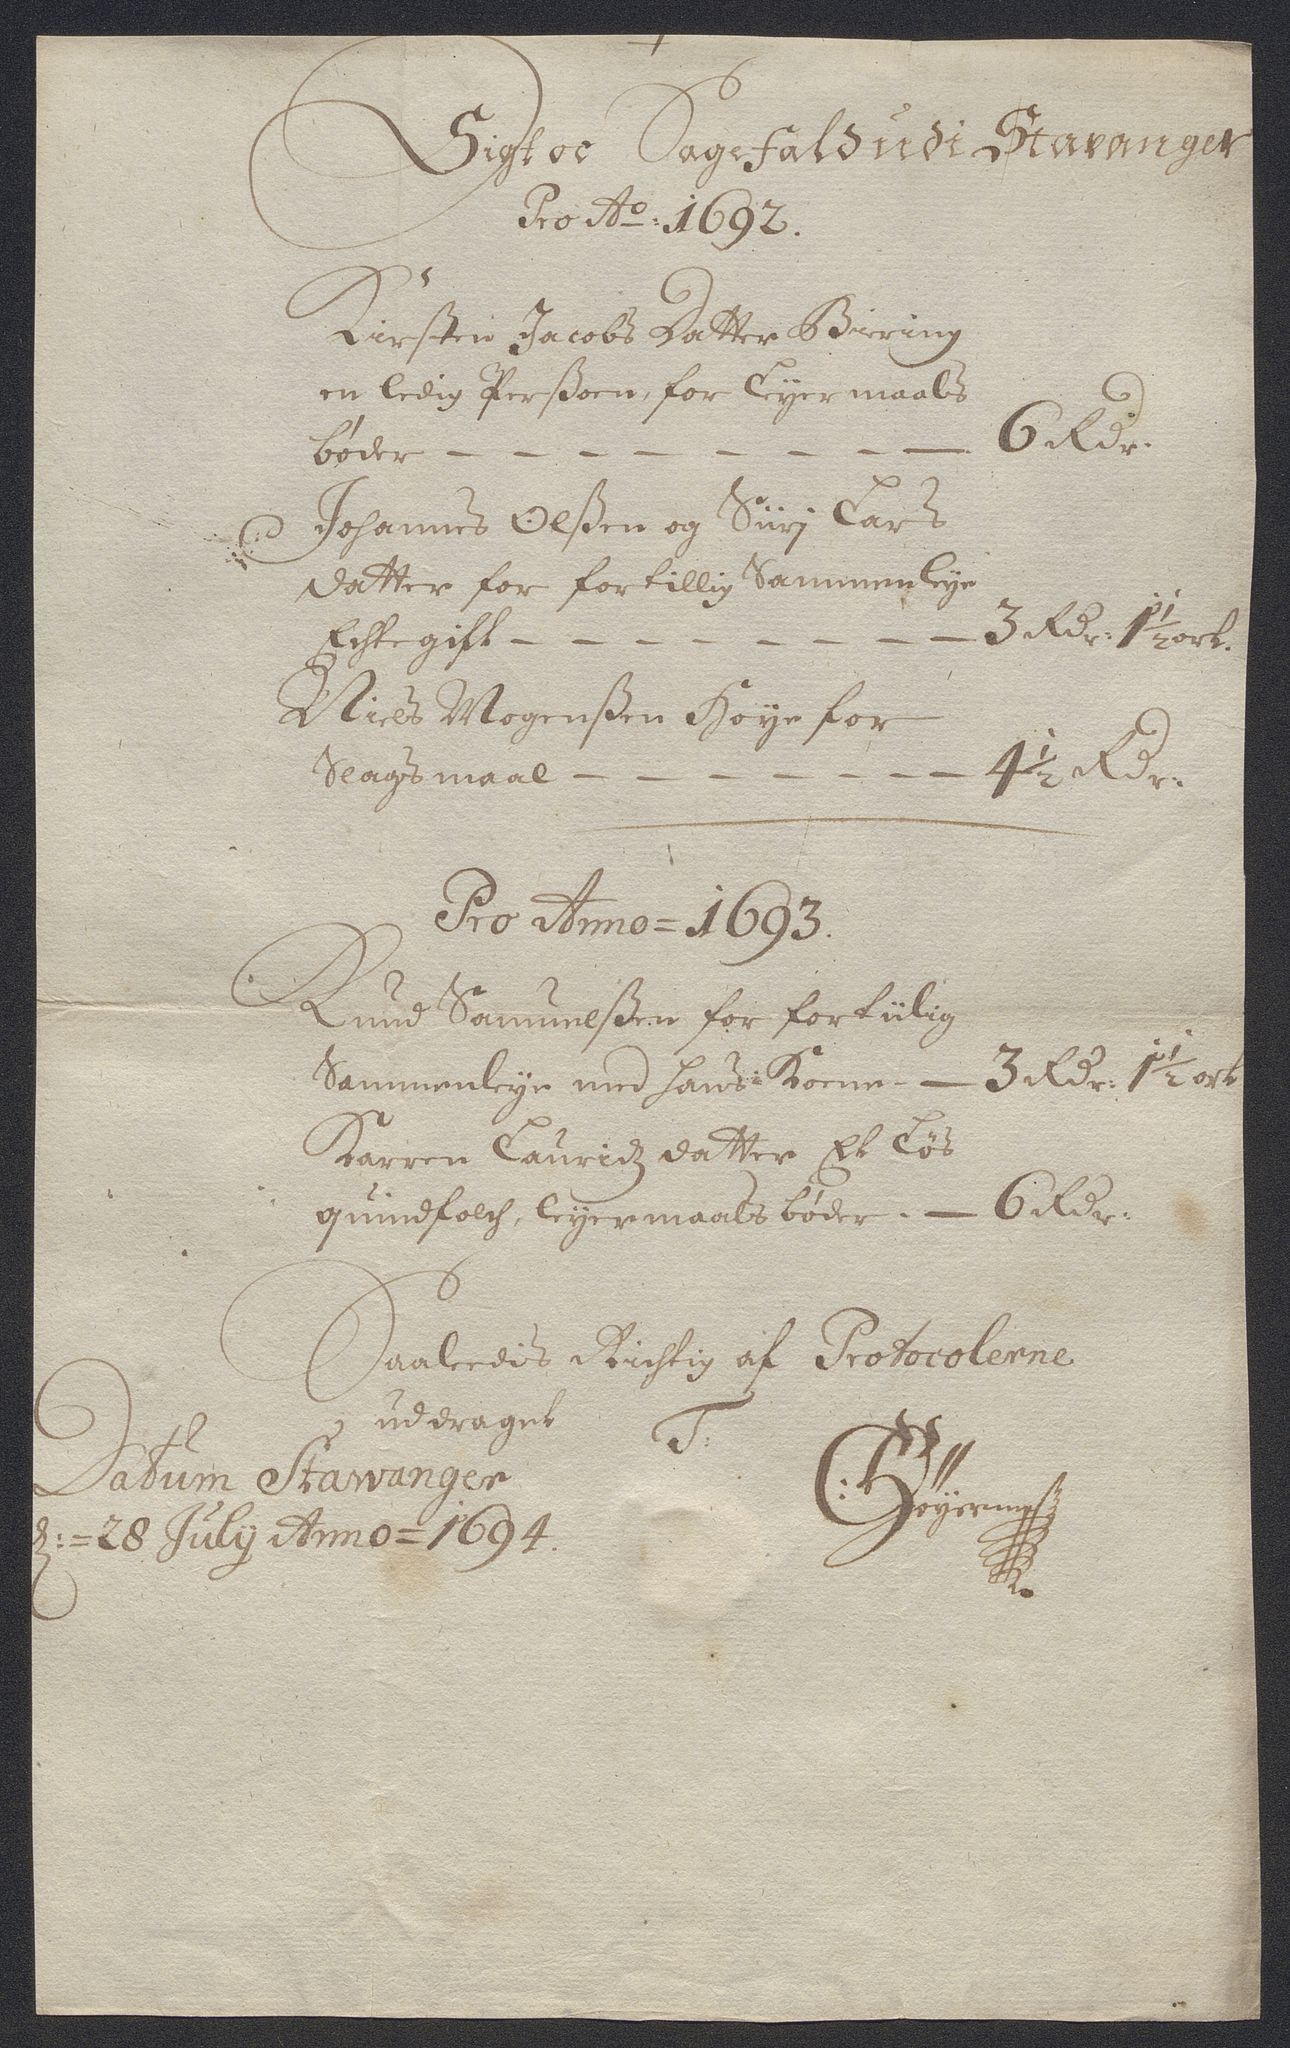 Sigt oc Sagefald udi Stavanger
Pro Ao: 1692.
Kirsten Jacobs Datter Biering
en ledig Perßoen, for Leyermaals
bøder - - - - - - - - - 6 Rdr.
Johannes Olßen og Siirj Lars
datter for fortillig Sammenleye
Echtegift - - - - - - - - 3 Rdr: 1½ ort.
Niels Mogenßen Høye for
Slagsmaal - - - - - - - 4½ Rdr:
Pro Anno = 1693.
Knud Samuelßen for fortiilig
Sammenleye med hans Koene - - 3 Rdr: 1½ ort
Karren Lauridz datter Et Løs
quindfolch, leyermaals bøder - - 6 Rdr:
Saaledis Richtig af Protocolerne
uddraget T:
Datum Stawanger
d: = 28 July Anno = 1694.